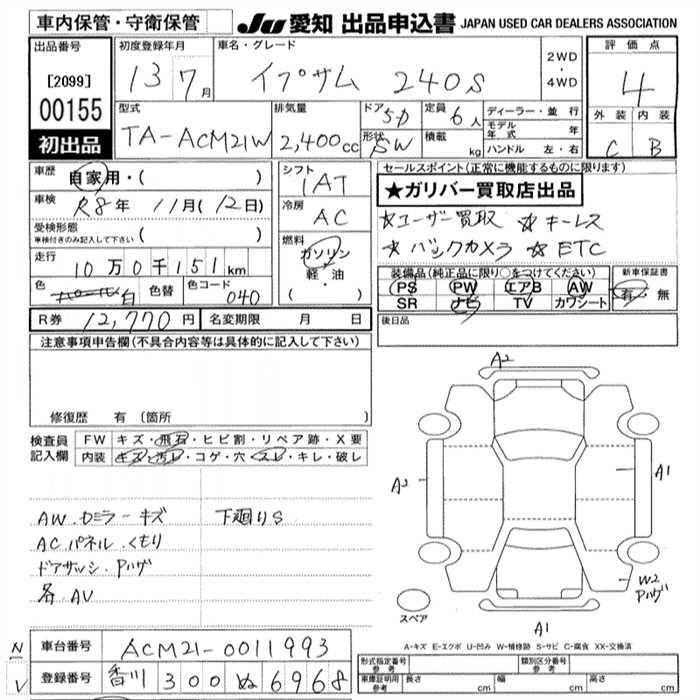 車内保管・守衛保管 JU 愛知 出品申込書 JAPAN USED CAR DEALERS ASSOCIATION
出品番号 初度登録年月 車名・グレード 2WD ・ 4WD 評価点
[2099] 13 7月 イプサム 240S 4
00155 型式 排気量 ドア 5D 定員 6人 ディーラー・並行 外装 内装
初出品 TA-ACM21W 2,400cc 形状 SW 積載 kg モデル年式 年 C B
ハンドル 左・右
車歴 自家用・( ) シフト 1AT セールスポイント(正常に機能するものに限ります)
★ガリバー買取店出品
車検 R8年 11月(12日) 冷房 AC ☆ユーザー買取 ☆キーレス
受検形態 ( ) ☆バックカメラ ☆ETC
車検付きのみ記入して下さい
燃料 ガソリン 軽・油 ( ・ )
走行 10万0千151km 装備品(純正品に限り○をつけてください) 新車保証書
色 白 色替 色コード 040 PS PW エアB AW 有・無
SR ナビ TV カワシート
R券 12,770円 名変期限 月 日 後日品
注意事項申告欄(不具合内容等は具体的に記入して下さい)
修復歴 有 (箇所
検査員 FW キズ・飛石・ヒビ割・リペア跡・X要
記入欄 内装 キズ・汚レ・コゲ・穴・スレ・キレ・破レ
A2
A2
A1
AW.カミラーキズ 下廻りS
ACパネル.くもり
ドアサッシ.Pハゲ
各AV
W2
Pハゲ
スペア
A1
A-キズ E-エクボ U-凹み W-補修跡 S-サビ C-腐食 XX-交換済
N 車台番号 ACM21-0011993
V 登録番号 香川 300 ぬ 6968
形式指定番号 参考 類別区分番号 参考
車庫証明用 参考 長さ cm 幅 cm 高さ cm